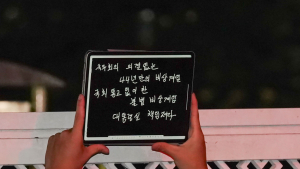 국무회의 의결없는
44년만의 비상계엄
국회 통고 없이 한
불법 비상계엄
대통령은 책임져라